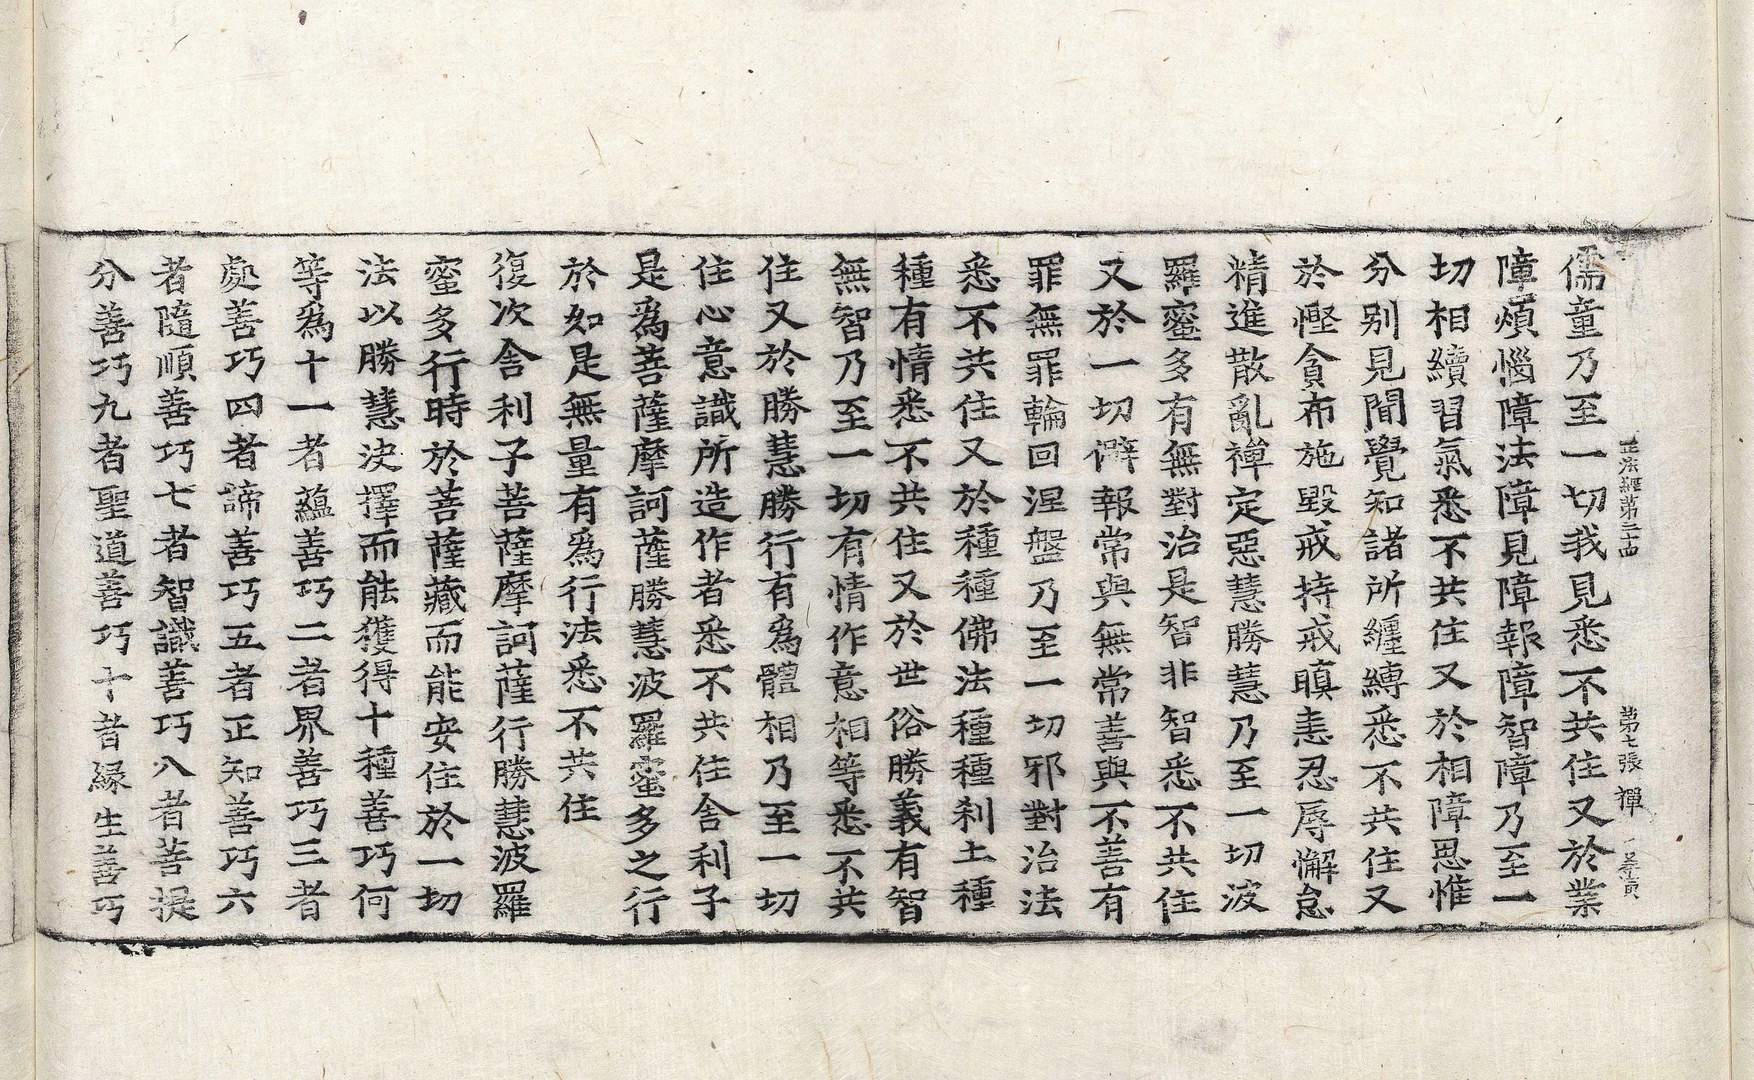 正法經第三十四 第七張 禪
儒童乃至一切我見悉不共住又於業
障煩惱障法障見障報障智障乃至一
切相續習氣悉不共住又於相障思惟
分別見聞覺知諸所纏縛悉不共住又
於慳貪布施毀戒持戒瞋恚忍辱懈怠
精進散亂禪定惡慧勝慧乃至一切波
羅蜜多有無對治是智非智悉不共住
又於一切僻報常與無常善與不善有
罪無罪輪回涅盤乃至一切邪對治法
悉不共住又於種種佛法種種刹土種
種有情悉不共住又於世俗勝義有智
無智乃至一切有情作意相等悉不共
住又於勝慧勝行有為體相乃至一切
住心意識所造作者悉不共住舍利子
是為菩薩摩訶薩勝慧波羅蜜多之行
於如是無量有為行法悉不共住
復次舍利子菩薩摩訶薩行勝慧波羅
蜜多行時於菩薩藏而能安住於一切
法以勝慧決擇而能獲得十種善巧何
等為十一者蘊善巧二者界善巧三者
處善巧四者諦善巧五者正知善巧六
者隨順善巧七者智識善巧八者菩提
分善巧九者聖道善巧十者緣生善巧